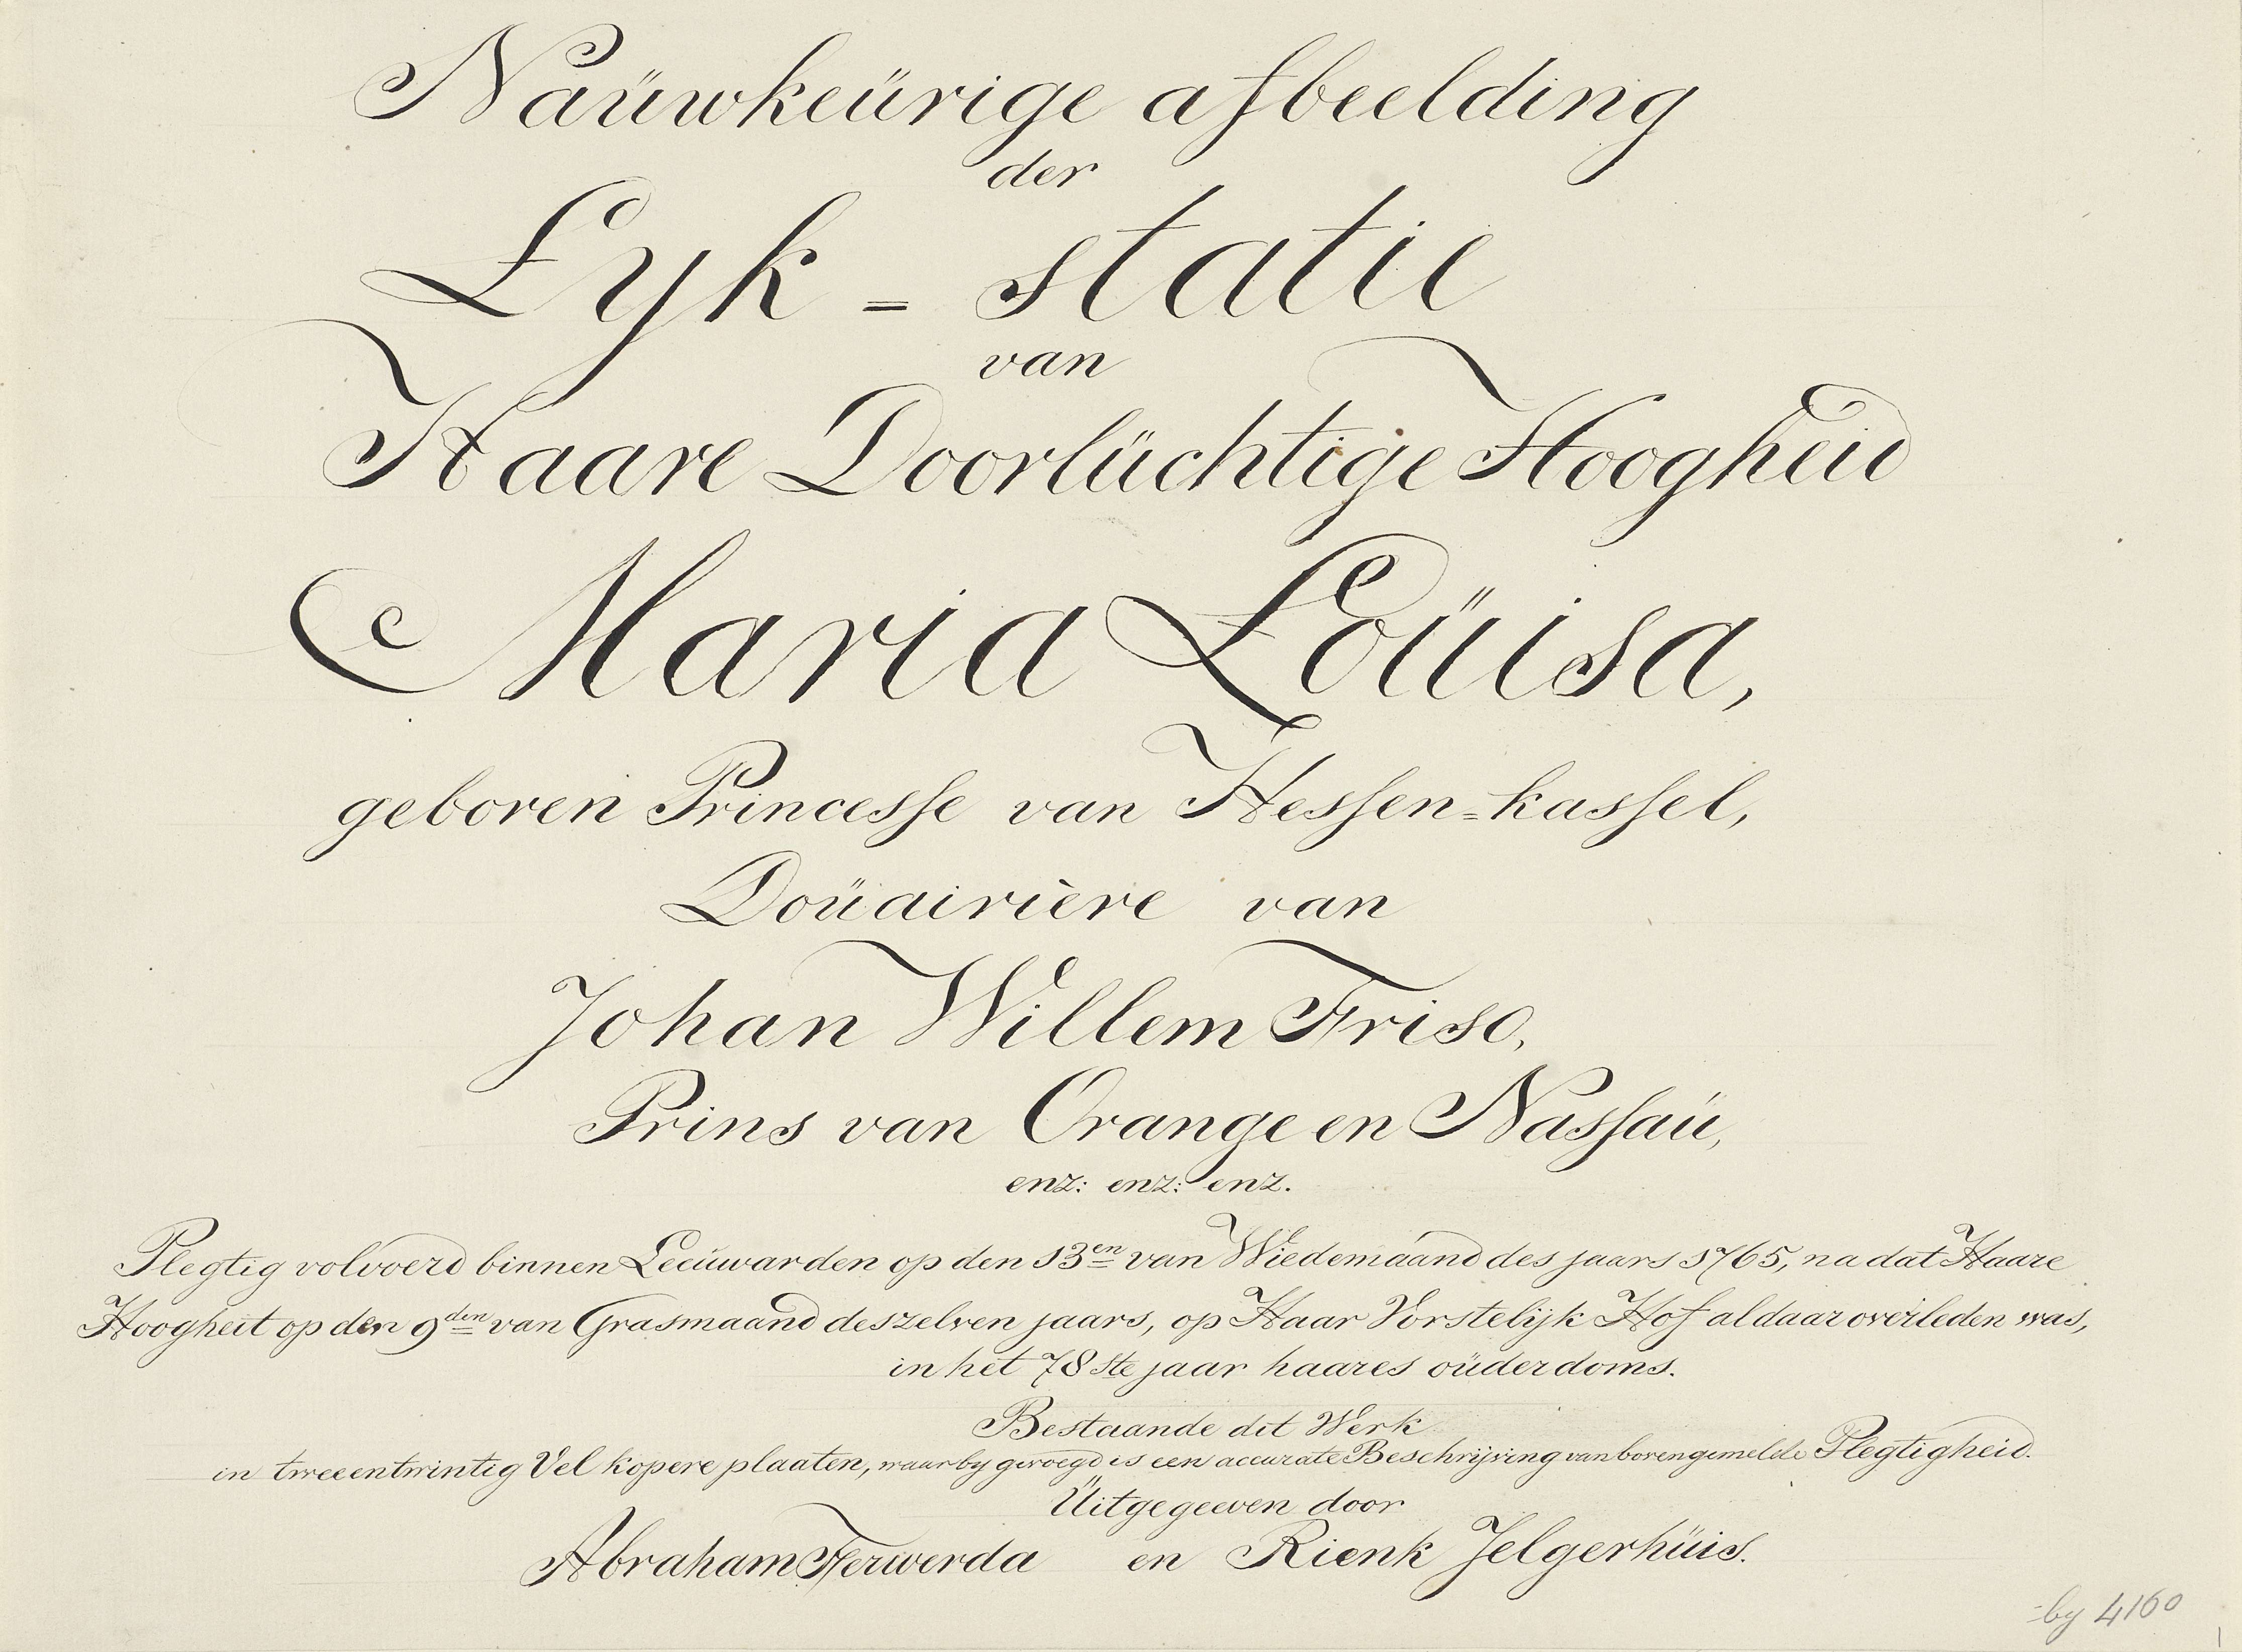 Naüwkeürige afbeelding
der
Lyk = statie
van
Haare Doorlüchtige Hoogheid
Maria Loüisa,
geboren Princesse van Hessen=kassel,
Doüairière van
Johan Willem Friso,
Prins van Orange en Nassaü,
enz: enz: enz.
Plegtig volvoerd binnen Leeüwarden op den 13en van Wiedemáand des jaars 1765, na dat Haare
Hoogheit op den 9den van Grasmaand deszelven jaars, op Haar Vorstelijk Hof aldaar overleden was,
in het 78ste jaar haares oüderdoms.
Bestaande dit Werk
in tweeentwintig Vel kopere plaaten, waarby gevoegd is een accurate Beschrijving van bovengemelde Plegtigheid.
Üitgegeeven door
Abraham Ferwerda en Rienk Jelgerhüis.
by 4160